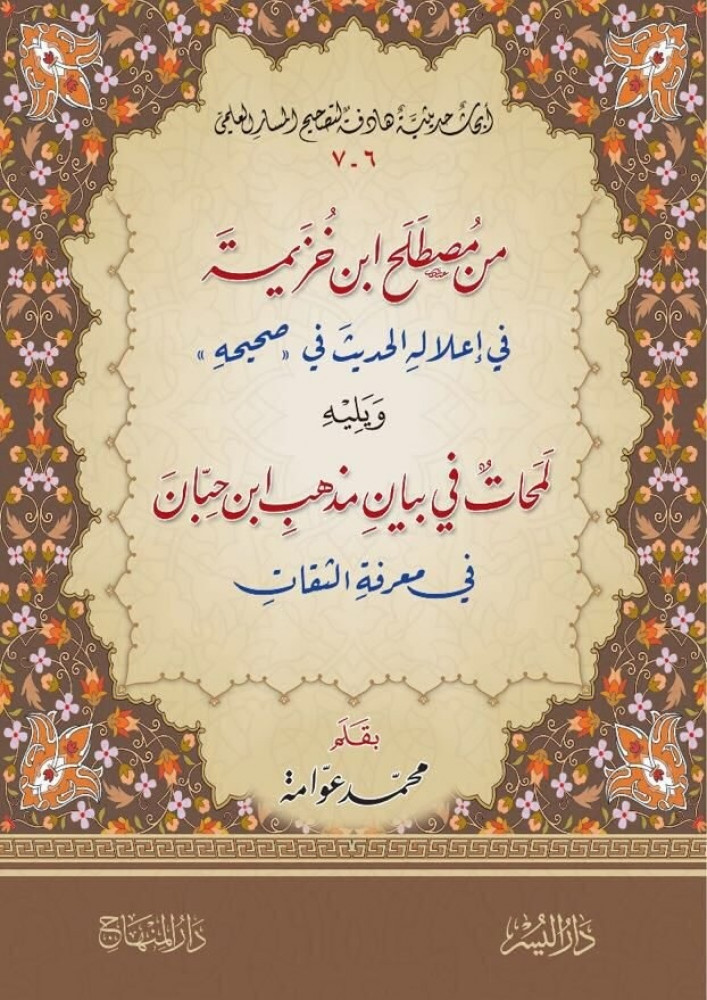 أبحاث حديثيَّةٌ هادفةٌ لتصحيح المسار العلمي
٦ - ٧
من مُصطَلَح ابن خُزَيمةَ
في إعلالهِ الحديثَ في «صحيحهِ»
وَيَلِيْهِ
لَمَحَاتٌ في بيانِ مذهبِ ابن حِبّانَ
في معرفةِ الثقاتِ
بقَلَم
محمّد عوّامة
دَارُ اليُسْرِ
دَارُ المِنْهَاج